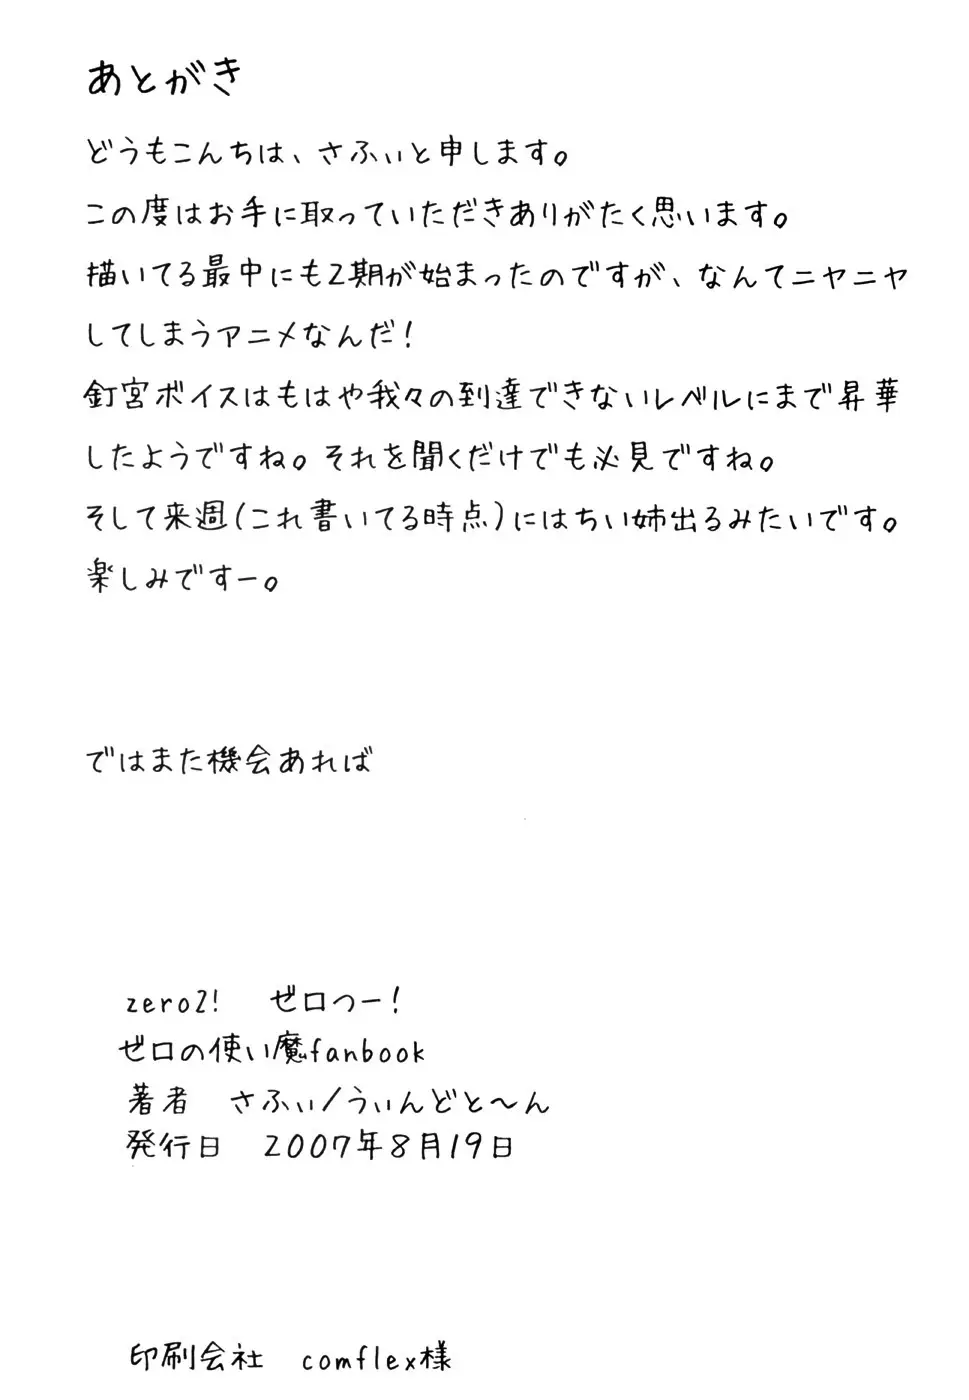 あとがき
どうもこんちは、さふぃと申します。
この度はお手に取っていただきありがたく思います。
描いてる最中にも2期が始まったのですが、なんてニヤニヤ
してしまうアニメなんだ!
釘宮ボイスはもはや我々の到達できないレベルにまで昇華
したようですね。それを聞くだけでも必見ですね。
そして来週(これ書いてる時点)にはちい姉出るみたいです。
楽しみですー。
ではまた機会あれば
zero2! ゼロつー!
ゼロの使い魔fanbook
著者 さふぃ/うぃんどと～ん
発行日 2007年8月19日
印刷会社 comflex様